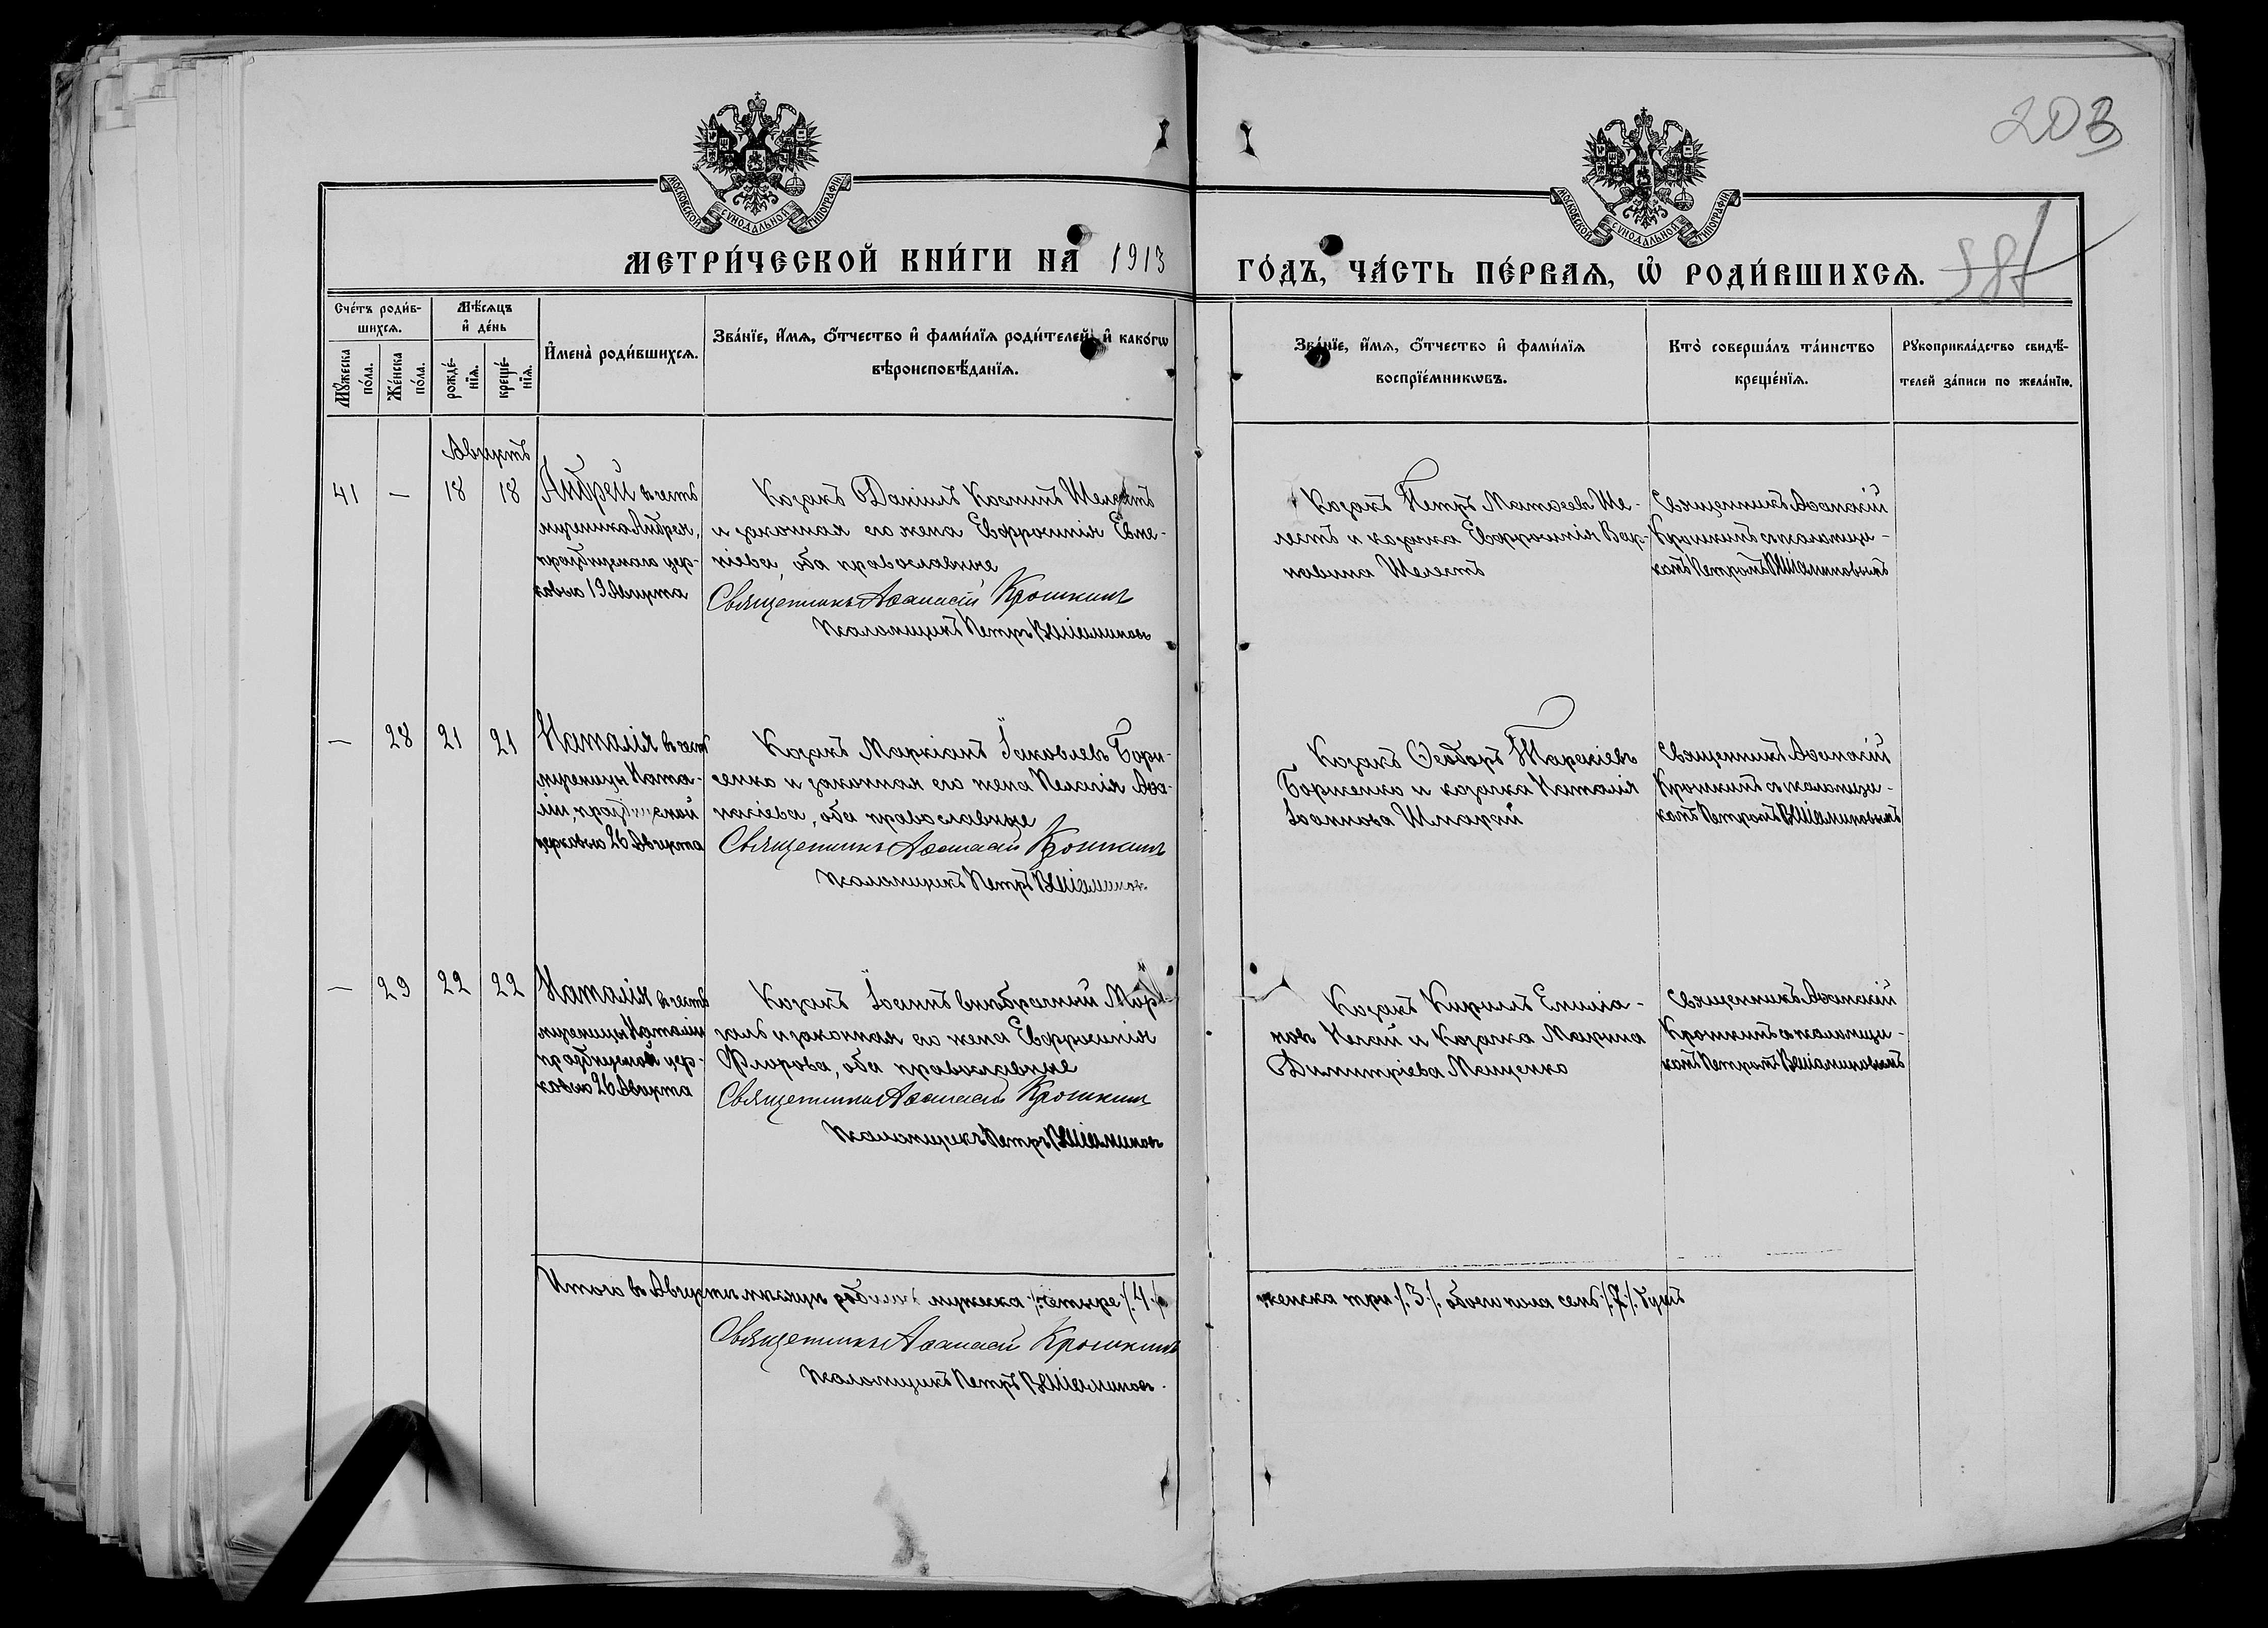 203
МОСКОВСКОЙ СѴНОДАЛЬНОЙ ТИПОГРАФІИ
МОСКОВСКОЙ СѴНОДАЛЬНОЙ ТИПОГРАФІИ
МЕТРИ́ЧЕСКОЙ КНИ́ГИ НА 1913 ГО́ДЪ, ЧА́СТЬ ПЕ́РВАѦ, Ѡ҆ РОДИ́ВШИХСѦ.
Сче́тъ роди́в-
шихсѧ.
Мѣ́сѧцъ
и҆ де́нь
Мꙋ́жеска
по́ла.
Же́нска
по́ла.
рожде́-
нїѧ.
креще́-
нїѧ.
И҆мена̀ роди́вшихсѧ.
Зва́нїе, и҆́мѧ, ѻ҆́тчество и҆ фами́лїѧ роди́телей, и҆ како́гѡ
вѣроисповѣ́данїѧ.
Зва́нїе, и҆́мѧ, ѻ҆́тчество и҆ фами́лїѧ
воспрїе́мникѡвъ.
Кто̀ соверша́лъ та́инство
креще́нїѧ.
Рꙋкоприкла́дство свидѣ́-
телей за́писи по жела́нїю.
Августъ
41 — 18 18
Андрей въ честь
мученика Андрея,
празднуемаго цер-
ковью 19 Августа
Козакъ Даніилъ Косминъ Шелестъ
и законная его жена Евфросинія Евме-
ніева, оба православные
Священникъ Аѳанасій Крошкинъ
Псаломщикъ Петръ Веніаминовъ
Козакъ Петръ Матѳеевъ Ше-
лестъ и казачка Евфросинія Вар-
навина Шелестъ
Священникъ Аѳанасій
Крошкинъ съ псаломщи-
комъ Петромъ Веніаминовымъ
— 28 21 21
Наталія въ честь
мученицы Ната-
ліи, празднуемой
церковью 26 Августа
Козакъ Маркіанъ Іаковлевъ Бори-
сенко и законная его жена Пелагія Аѳа-
насіева, оба православные
Священникъ Аѳанасій Крошкинъ
Псаломщикъ Петръ Веніаминов.
Козакъ Ѳеодоръ Тарасіевъ
Борисенко и козачка Наталія
Іоаннова Шмарай
Священникъ Аѳанасій
Крошкинъ съ псаломщи-
комъ Петромъ Веніаминовымъ
— 29 22 22
Наталія въ честь
мученицы Наталіи
празднуемой цер-
ковью 26 Августа
Козакъ Іоаннъ внебрачный Мар-
галъ и законная его жена Евфросинія
Флорова, оба православные
Священникъ Аѳанасій Крошкинъ
Псаломщикъ Петръ Веніаминовъ
Козакъ Кириллъ Емиліа-
новъ Негай и Козачка Марина
Димитріева Мащенко
Священникъ Аѳанасій
Крошкинъ съ псаломщи-
комъ Петромъ Веніаминовымъ
Итого въ Августѣ мѣсяцѣ родилось мужеска /. четыре /. 4 /.
женска три /. 3 /. обоего пола семь /. 7 /. душъ
Священникъ Аѳанасій Крошкинъ
Псаломщикъ Петръ Веніаминовъ.